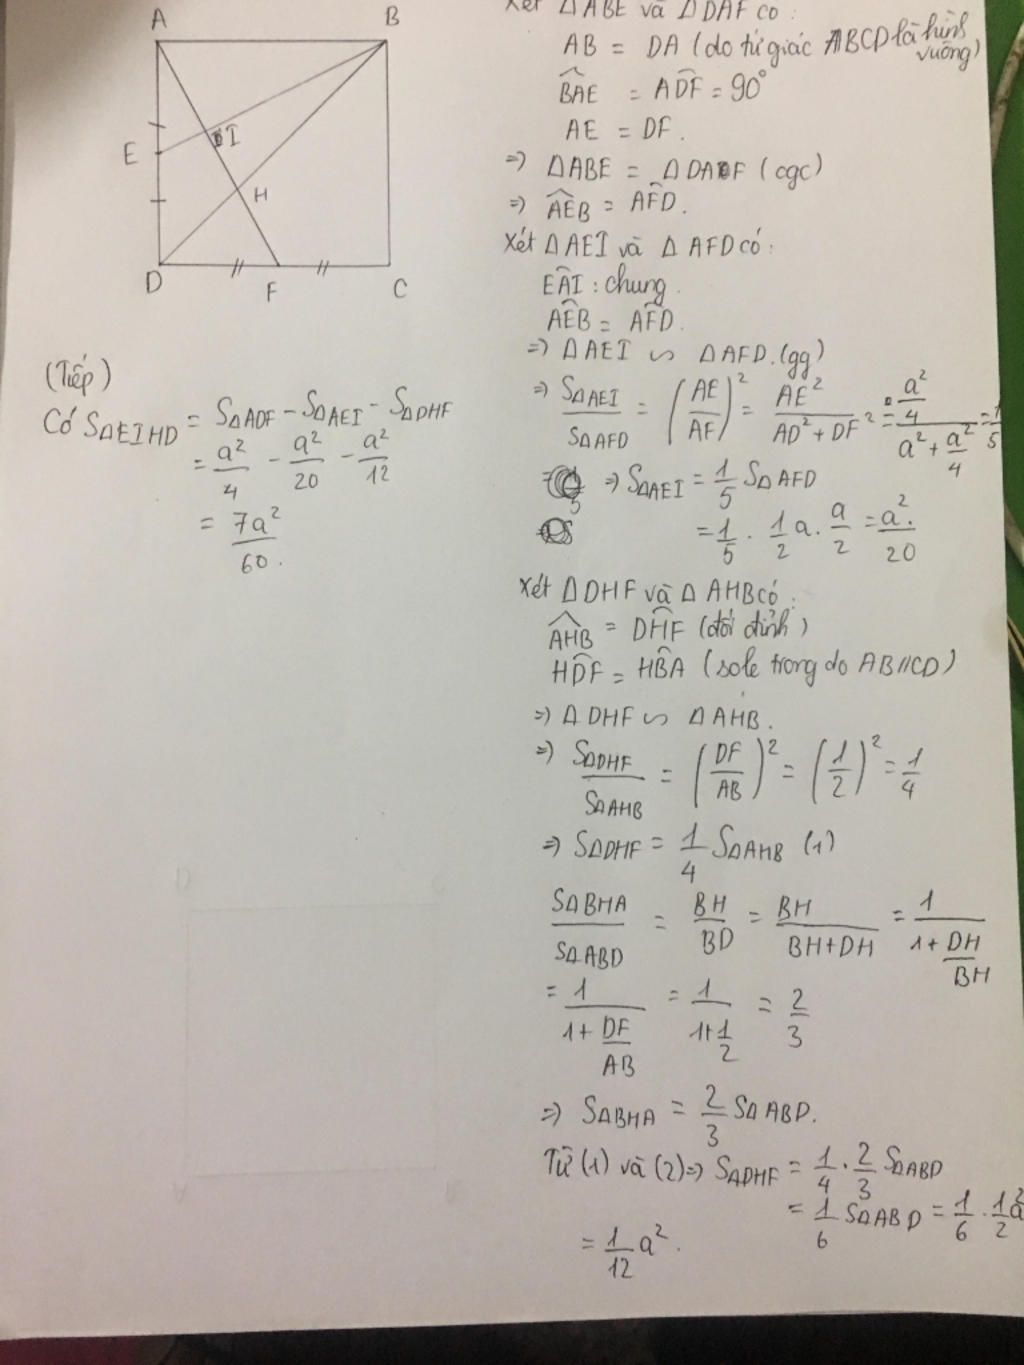 A B
E I
H
D F C
(Tiếp)
Có SΔEIHD = SΔADF − SΔAEI − SΔDHF
= a²/4 − a²/20 − a²/12
= 7a²/60.
Xét ΔABE và ΔDAF có:
AB = DA (do tứ giác ABCD là hình vuông)
BAE = ADF = 90°
AE = DF.
=> ΔABE = ΔDAF (cgc)
=> AEB = AFD.
Xét ΔAEI và ΔAFD có:
EAI : chung.
AEB = AFD.
=> ΔAEI ∽ ΔAFD. (gg)
=> SΔAEI/SΔAFD = (AE/AF)² = AE²/(AD² + DF²) = (a²/4)/(a² + a²/4) = 1/5
=> SΔAEI = 1/5 SΔAFD
= 1/5 . 1/2 a . a/2 = a²/20.
Xét ΔDHF và ΔAHB có:
AHB = DHF (đối đỉnh)
HDF = HBA (sole trong do AB//CD)
=> ΔDHF ∽ ΔAHB.
=> SΔDHF/SΔAHB = (DF/AB)² = (1/2)² = 1/4
=> SΔDHF = 1/4 SΔAHB (1)
SΔBHA/SΔABD = BH/BD = BH/(BH+DH) = 1/(1 + DH/BH)
= 1/(1 + DF/AB) = 1/(1+1/2) = 2/3
=> SΔBHA = 2/3 SΔABD.
Từ (1) và (2) => SΔDHF = 1/4 . 2/3 SΔABD
= 1/6 SΔABD = 1/6 . 1/2 a²
= 1/12 a².